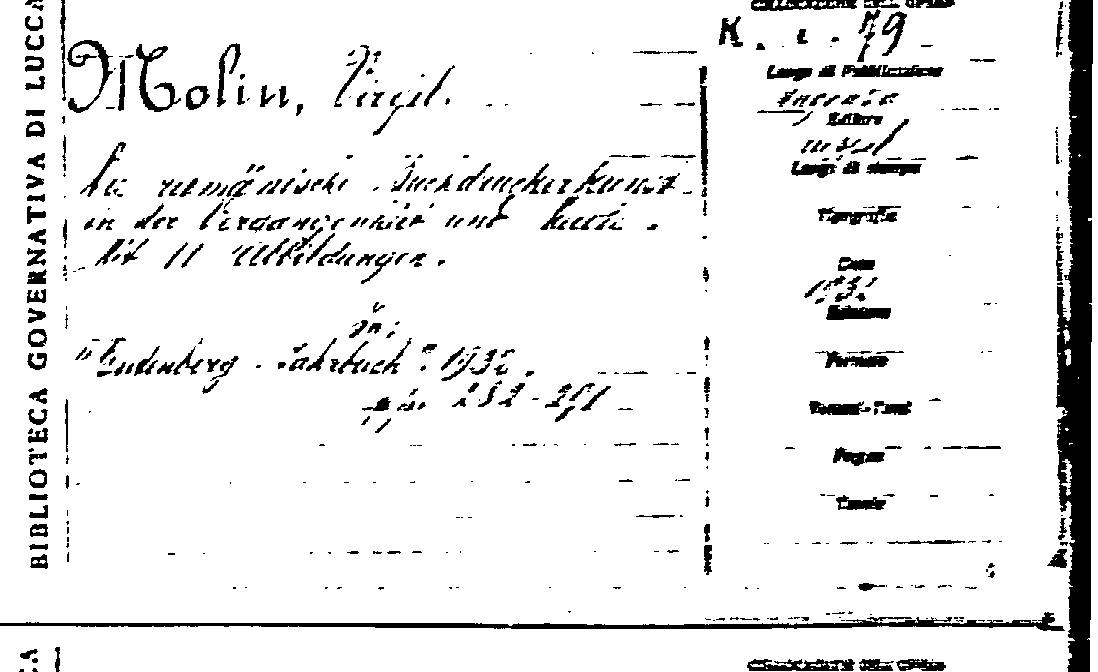 BIBLIOTECA GOVERNATIVA DI LUCCA
COLLOCAZIONE DELL'OPERA
K. i. 79
Molin, Virgil.
Die rumänische Buchdruckerkunst
in der Vergangenheit und heute.
Mit 11 Abbildungen.
In:
"Gutenberg-Jahrbuch" 1932.
pp.
Luogo di Pubblicazione
Editore
Luogo di stampa
Tipografia
Data
Edizione
Formato
Pagine
Tavole
COLLOCAZIONE DELL'OPERA